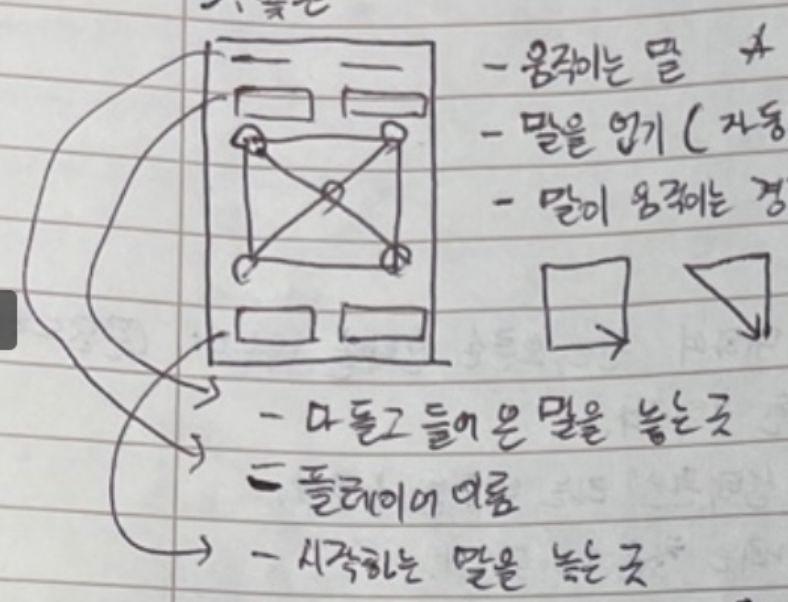 - 움직이는 말
- 말을 업기 ( 자동
- 말이 움직이는 경
- 다 돌고 들어 온 말을 놓는 곳
- 플레이어 이름
- 시작하는 말을 놓는 곳